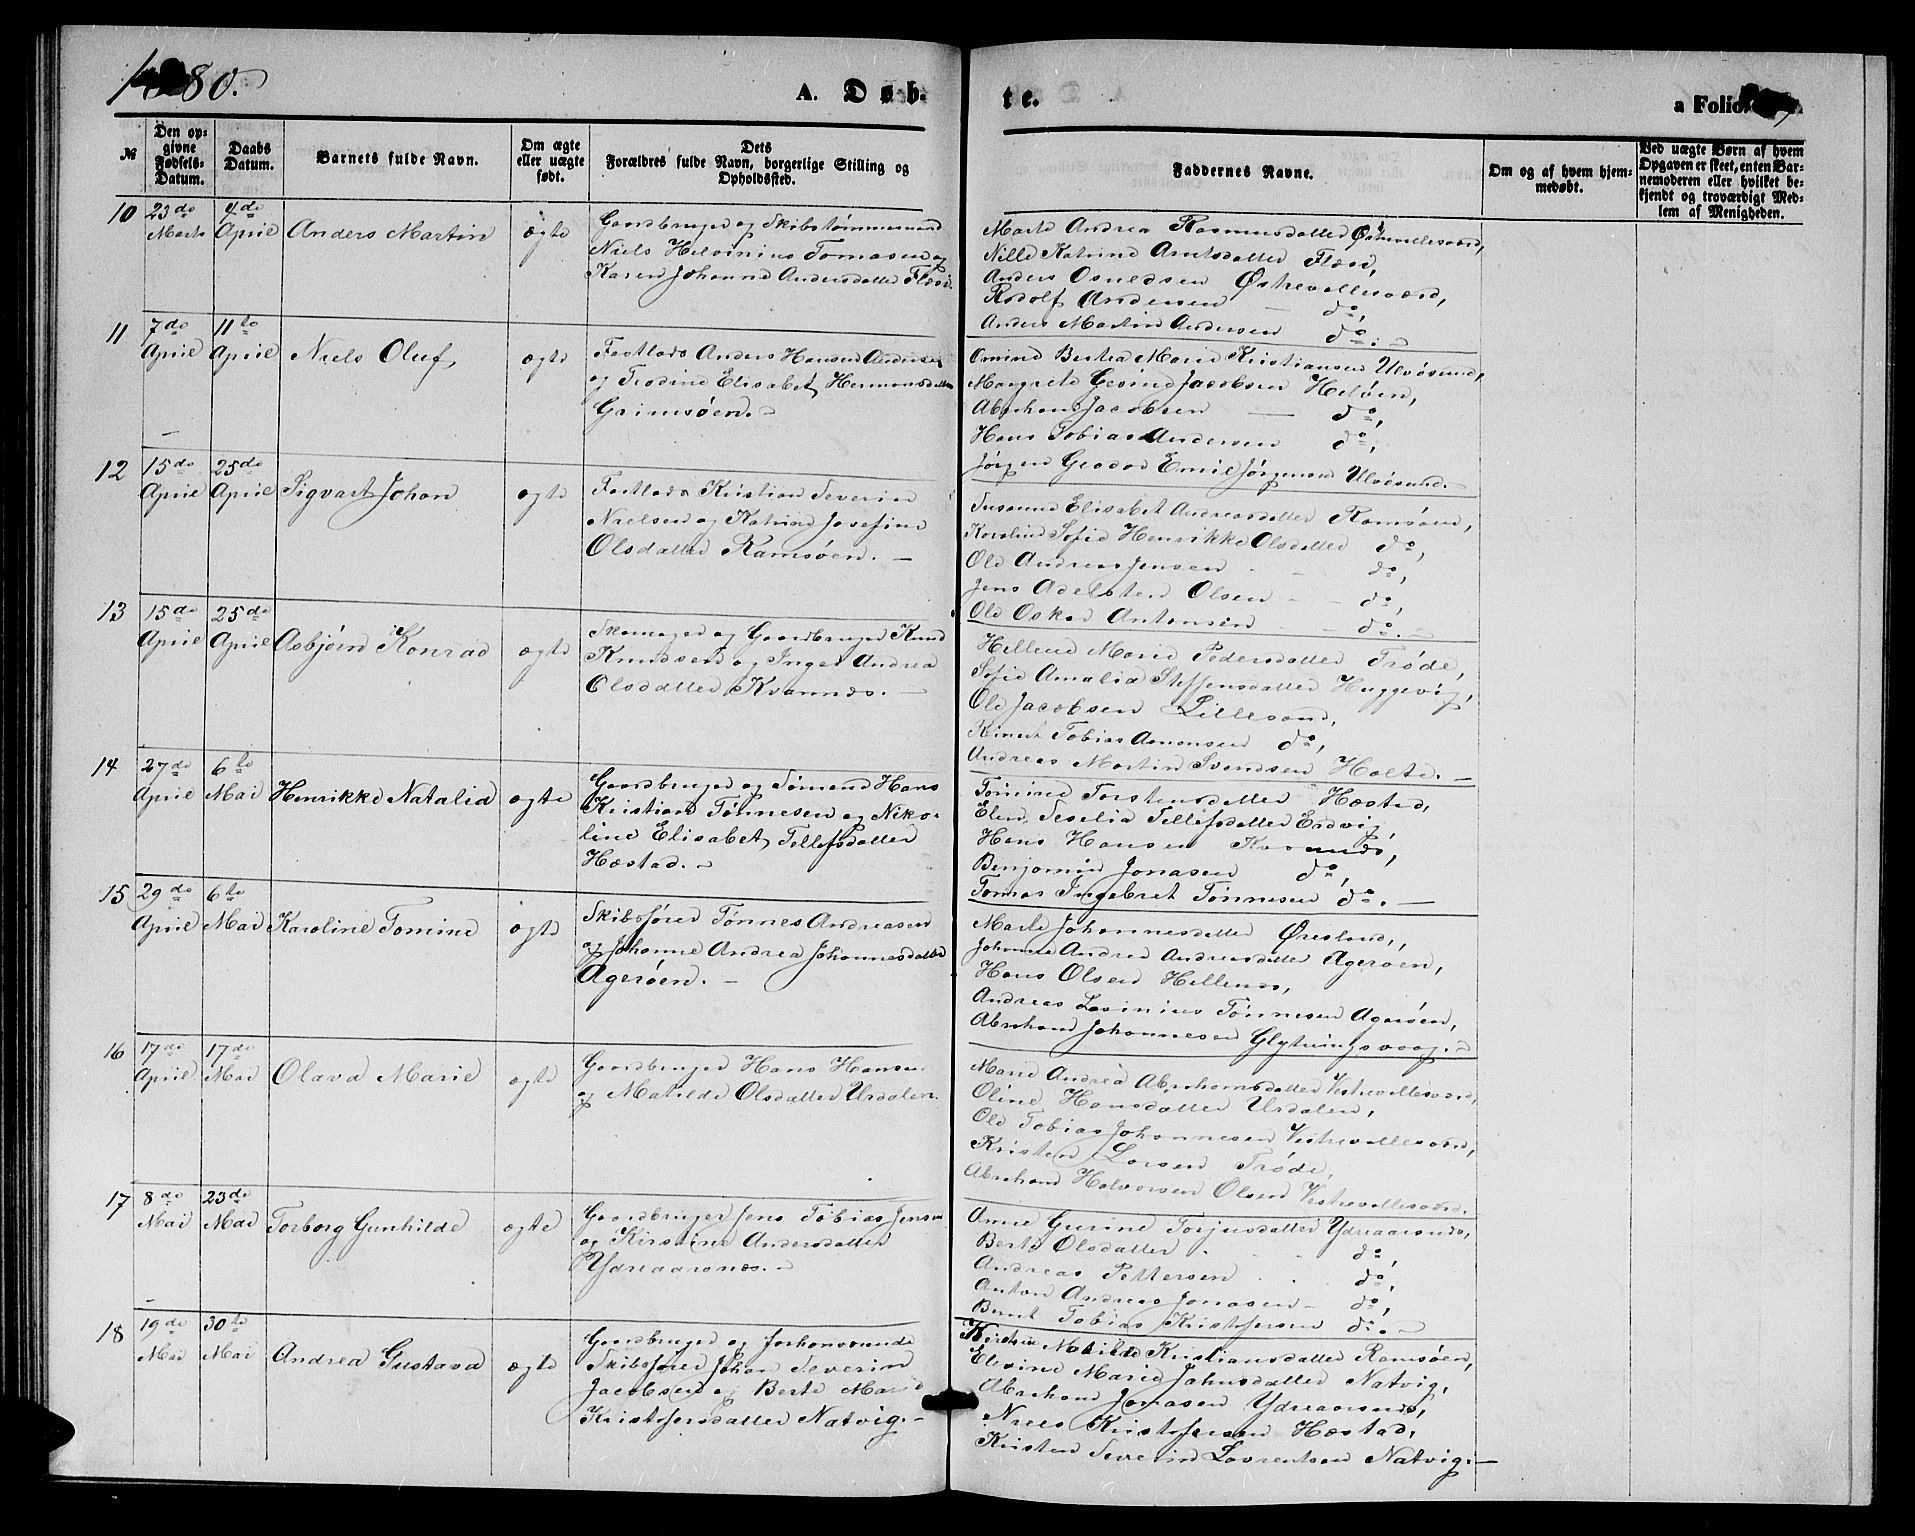 1880.
A. Døb-
te.
a Folio.
№
Den op-
givne
Fødsels-
Datum.
Daabs
Datum.
Barnets fulde Navn.
Om ægte
eller uægte
født.
Dets
Forældres fulde Navn, borgerlige Stilling og
Opholdssted.
Faddernes Navne.
Om og af hvem hjem-
medøbt.
Ved uægte Børn af hvem
Opgaven er skeet, enten Bar-
nemoderen eller hvilket be-
kjendt og troværdigt Med-
lem af Menigheden.
10
23de
Marts
4de
April
Anders Martin
ægte
Gaardbruger og Skibstømmermand
Niels Helvinius Tomasen og
Karen Johanne Andersdatter Flæsi.
Marte Andrea Rasmusdatter Østrevellesvær,
Nille Katrine Arntsdatter Flæsi,
Anders Osuldsen Østrevellesværd,
Rodolf Andersen — do,
Anders Martin Andersen do. —
11
7de
April
11te
April
Niels Oluf,
ægte
Fastlods Anders Hansen Andersen
og Trodine Elisabet Hermansdatter
Grimsøen. —
Omine Bertea Marie Kristiansen Ulvøsund,
Margrete Gesine Jacobsen Heløen,
Abraham Jacobsen — do,
Hans Tobias Andersen do,
Jørgen Geodor Emil Jørgensen Ulvøsund. —
12
15de
April
25de
April
Sigvart Johan
ægte
Fastlods Kristian Severin
Nielsen og Katrine Josefine
Olsdatter Ramsøen. —
Susanne Elisabet Andreasdatter Ramsøen,
Karoline Sofie Henrikke Olsdatter do,
Ole Andreas Jensen — do,
Jens Adelsten Olsen — do,
Ole Oskar Antonsen do. —
13
15de
April
25de
April
Asbjørn Konrad
ægte
Skomager og Gaardbruger Knud
Knudsen og Inger Andrea
Olsdatter Kvannes. —
Hellene Marie Pedersdatter Trøde,
Sofie Amalia Steffensdatter Huggevig,
Ole Jacobsen Lillesand,
Reinert Tobias Amonsen do,
Andreas Martin Svendsen Holte. —
14
27de
April
6te
Mai
Henrikke Natalia
ægte
Gaardbruger og Sømand Hans
Kristian Tønnesen og Niko-
line Elisabet Tellefsdatter
Hæstad. —
Tomine Torstensdatter Hæstad,
Elen Teselia Tellefsdatter Eidvig,
Hans Hansen
Benjamin Jonasen do,
Tomas Ingebret Tønnesen do. —
15
29de
April
6te
Mai
Karoline Tomine
ægte
Skibsfører Tønnes Andreasen
og Johanne Andrea Johannesdatter
Agerøen. —
Marte Johannesdatter Øresland,
Johanne Andrea Andreasdatter Agerøen,
Hans Olsen Hellenes,
Andreas Lovinius Tønnesen Agerøen,
Abraham Johannesen Glytringsvaag. —
16
17de
April
17de
Mai
Olava Marie
ægte
Gaardbruger Hans Hansen
og Matilde Olsdatter Urdalen.
Marie Andrea Abrahamsdatter Vestrevellesværd,
Oline Hansdatter Urdalen,
Ole Tobias Johannesen Vestrevellesværd,
Kristen Larsen Trøde,
Abraham Halvorsen Olsen Vestrevellesværd.
17
8de
Mai
23de
Mai
Torborg Gunhilde
ægte
Gaardbruger Jens Tobias Jensen
og Kirstine Andersdatter
Ydreaarsnes. —
Anne Gurine Torjusdatter Ydreaarsnes,
Berte Olsdatter do,
Andreas Pettersen do,
Anton Andreas Jonasen — do,
Bernt Tobias Kristofersen do. —
18
19de
Mai
30te
Mai
Andrea Gustava
ægte
Gaardbruger og forhenværende
Skibsfører Johan Severin
Jacobsen og Berte Marie
Kristofersdatter Natvig. —
Kirstine Matilde Kristiansdatter Ramsøen,
Elevine Marie Jahnsdatter Natvig,
Abraham Jonasen Ydreaarsnes,
Niels Kristofersen Hæstad,
Kristen Severin Lavrentsen Natvig. —